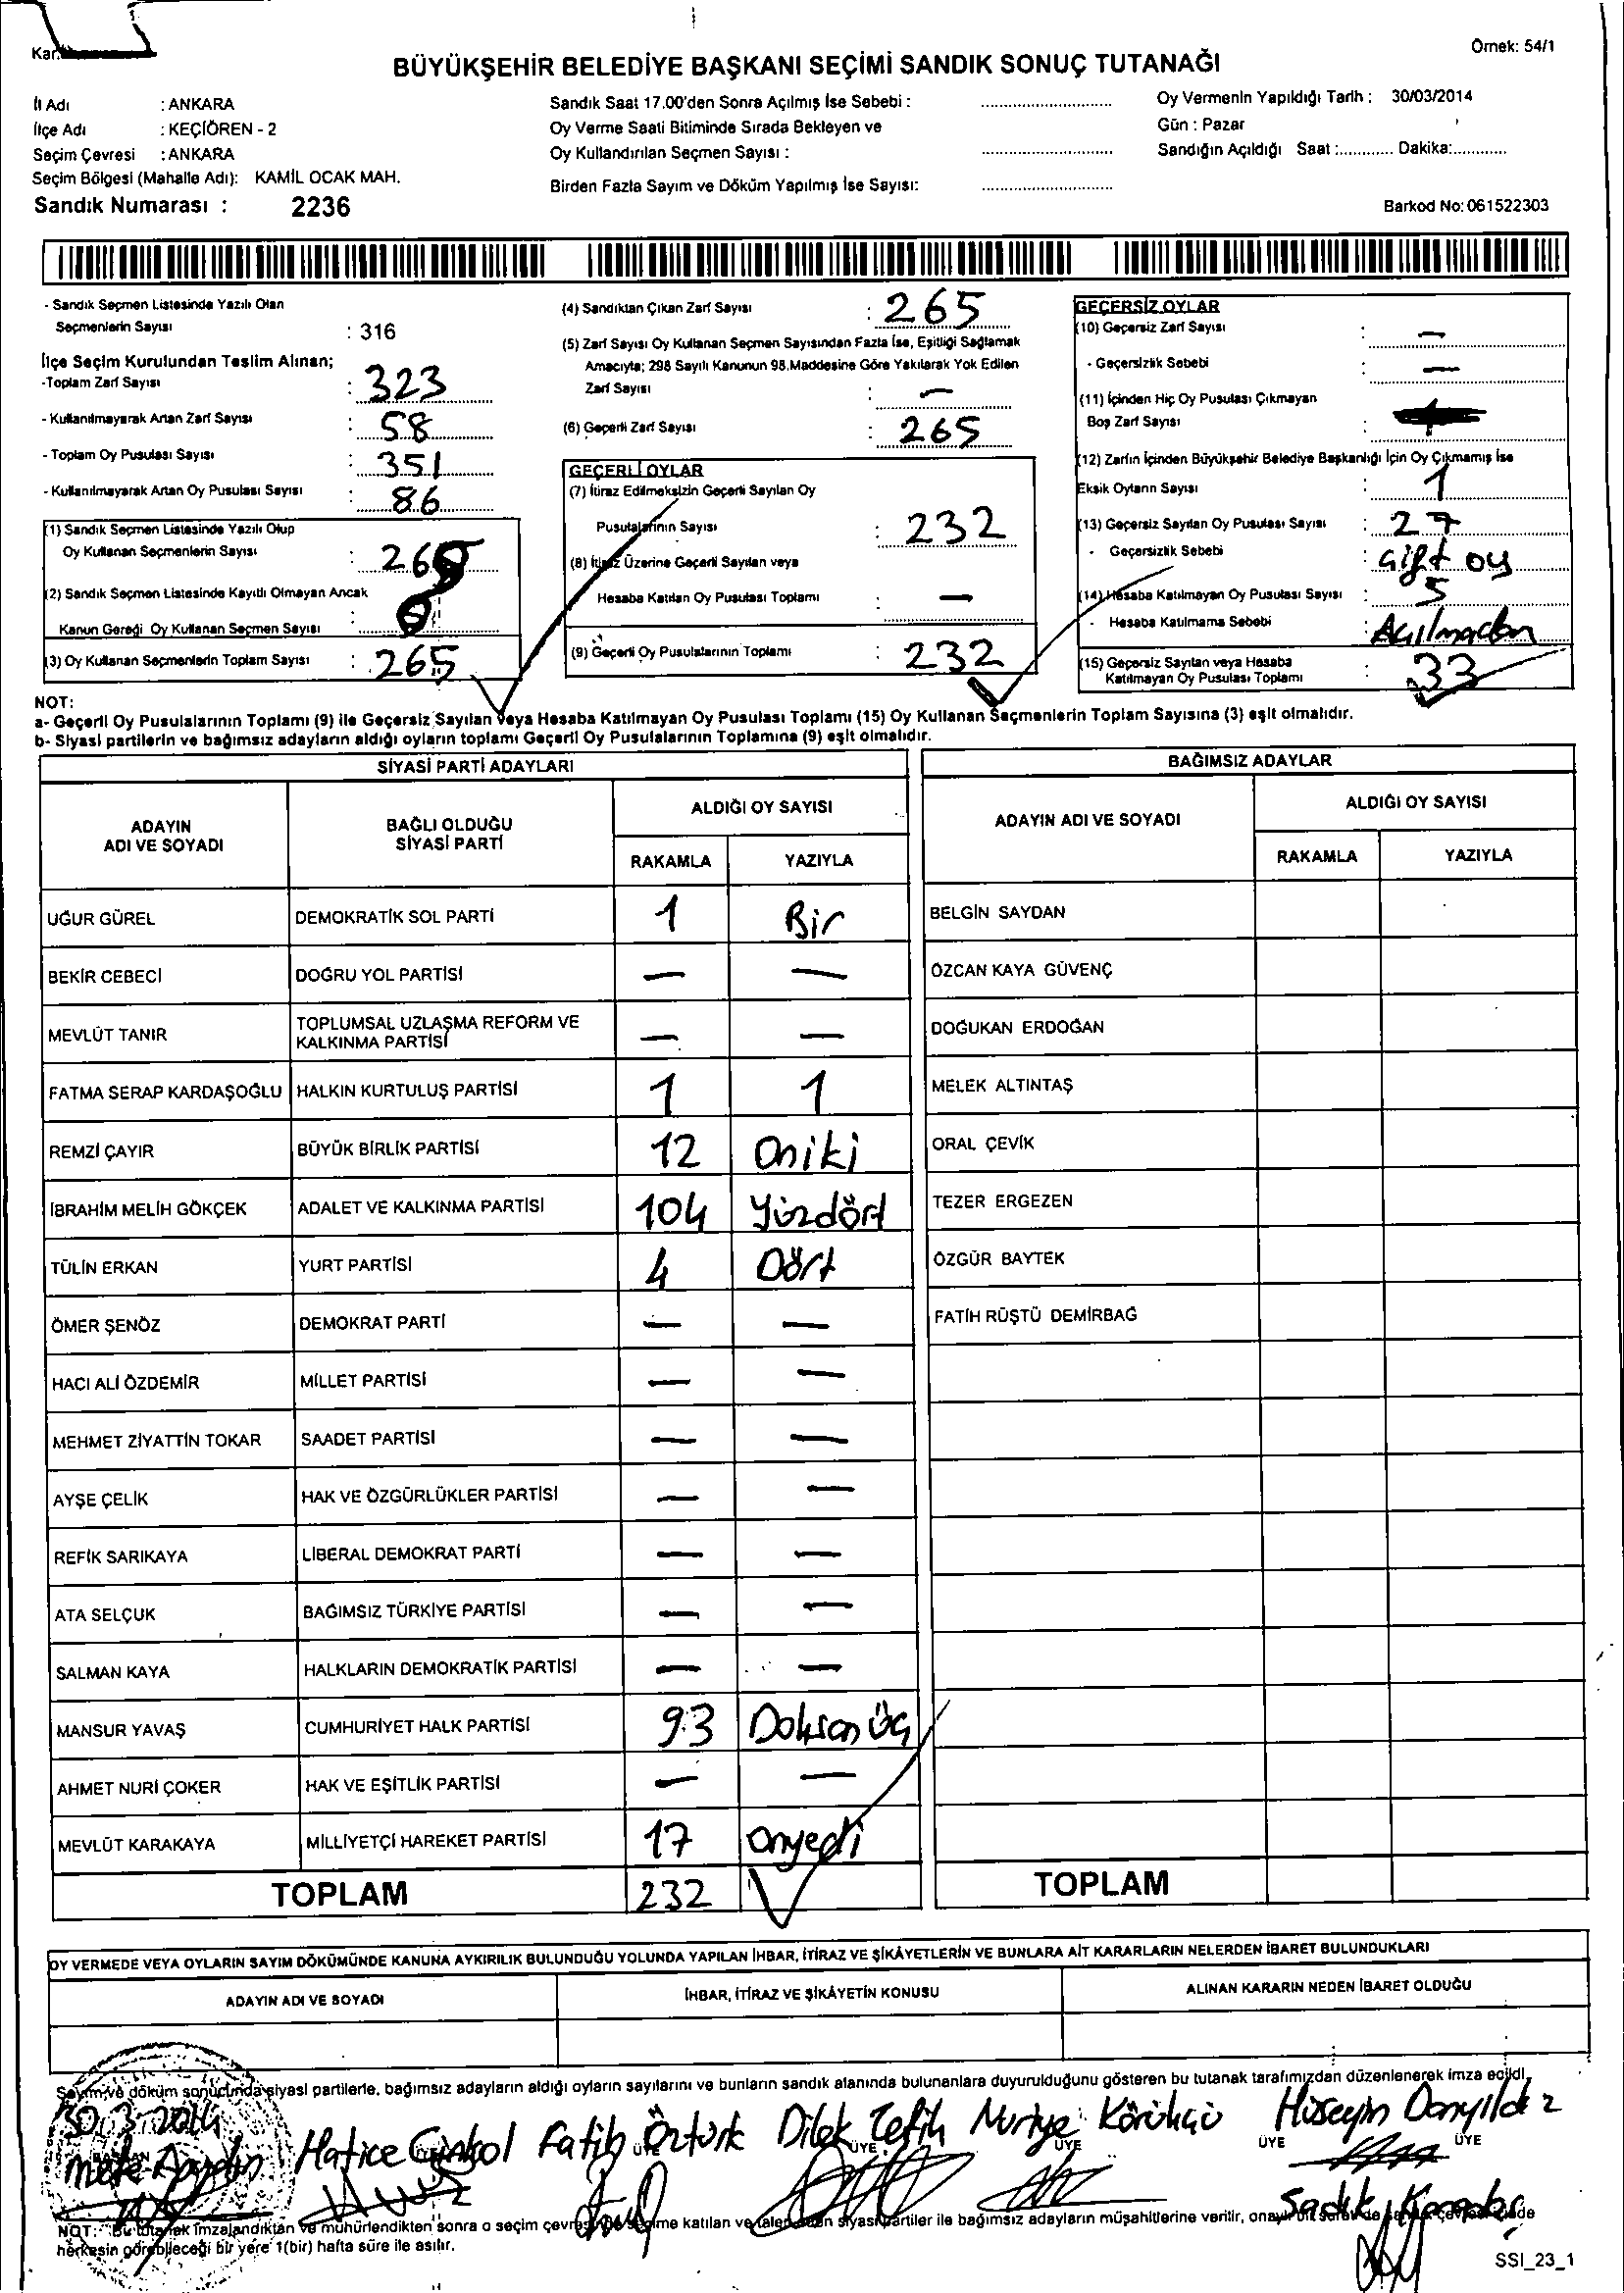 Örnek: 54/1
BÜYÜKŞEHİR BELEDİYE BAŞKANI SEÇİMİ SANDIK SONUÇ TUTANAĞI
İl Adı : ANKARA
İlçe Adı : KEÇİÖREN - 2
Seçim Çevresi : ANKARA
Seçim Bölgesi (Mahalle Adı): KAMİL OCAK MAH.
Sandık Numarası : 2236
Sandık Saat 17.00'den Sonra Açılmış İse Sebebi :
Oy Verme Saati Bitiminde Sırada Bekleyen ve
Oy Kullandırılan Seçmen Sayısı :
Birden Fazla Sayım ve Döküm Yapılmış İse Sayısı:
Oy Vermenin Yapıldığı Tarih : 30/03/2014
Gün : Pazar
Sandığın Açıldığı Saat :............ Dakika:............
Barkod No: 061522303
- Sandık Seçmen Listesinde Yazılı Olan
Seçmenlerin Sayısı : 316
İlçe Seçim Kurulundan Teslim Alınan;
-Toplam Zarf Sayısı : 323
- Kullanılmayarak Artan Zarf Sayısı : 58
- Toplam Oy Pusulası Sayısı : 351
- Kullanılmayarak Artan Oy Pusulası Sayısı : 86
(1) Sandık Seçmen Listesinde Yazılı Olup
Oy Kullanan Seçmenlerin Sayısı : 265
(2) Sandık Seçmen Listesinde Kayıtlı Olmayan Ancak
Kanun Gereği Oy Kullanan Seçmen Sayısı :
(3) Oy Kullanan Seçmenlerin Toplam Sayısı : 265
(4) Sandıktan Çıkan Zarf Sayısı : 265
(5) Zarf Sayısı Oy Kullanan Seçmen Sayısından Fazla İse, Eşitliği Sağlamak
Amacıyla; 298 Sayılı Kanunun 98.Maddesine Göre Yakılarak Yok Edilen
Zarf Sayısı : —
(6) Geçerli Zarf Sayısı : 265
GEÇERLİ OYLAR
(7) İtiraz Edilmeksizin Geçerli Sayılan Oy
Pusulalarının Sayısı : 232
(8) İtiraz Üzerine Geçerli Sayılan veya
Hesaba Katılan Oy Pusulası Toplamı : —
(9) Geçerli Oy Pusulalarının Toplamı : 232
GEÇERSİZ OYLAR
(10) Geçersiz Zarf Sayısı : —
- Geçersizlik Sebebi : —
(11) İçinden Hiç Oy Pusulası Çıkmayan
Boş Zarf Sayısı :
(12) Zarfın İçinden Büyükşehir Belediye Başkanlığı İçin Oy Çıkmamış İse
Eksik Oyların Sayısı : 1
(13) Geçersiz Sayılan Oy Pusulası Sayısı : 27
- Geçersizlik Sebebi : Çift oy
(14) Hesaba Katılmayan Oy Pusulası Sayısı : 5
- Hesaba Katılmama Sebebi : Açılmadan
(15) Geçersiz Sayılan veya Hesaba
Katılmayan Oy Pusulası Toplamı : 33
NOT:
a- Geçerli Oy Pusulalarının Toplamı (9) ile Geçersiz Sayılan Veya Hesaba Katılmayan Oy Pusulası Toplamı (15) Oy Kullanan Seçmenlerin Toplam Sayısına (3) eşit olmalıdır.
b- Siyasi partilerin ve bağımsız adayların aldığı oyların toplamı Geçerli Oy Pusulalarının Toplamına (9) eşit olmalıdır.
SİYASİ PARTİ ADAYLARI
ADAYIN ADI VE SOYADI BAĞLI OLDUĞU SİYASİ PARTİ ALDIĞI OY SAYISI
RAKAMLA YAZIYLA
UĞUR GÜREL DEMOKRATİK SOL PARTİ 1 Bir
BEKİR CEBECİ DOĞRU YOL PARTİSİ — —
MEVLÜT TANIR TOPLUMSAL UZLAŞMA REFORM VE KALKINMA PARTİSİ — —
FATMA SERAP KARDAŞOĞLU HALKIN KURTULUŞ PARTİSİ 1 1
REMZİ ÇAYIR BÜYÜK BİRLİK PARTİSİ 12 Oniki
İBRAHİM MELİH GÖKÇEK ADALET VE KALKINMA PARTİSİ 104 Yüzdört
TÜLİN ERKAN YURT PARTİSİ 4 Dört
ÖMER ŞENÖZ DEMOKRAT PARTİ — —
HACI ALİ ÖZDEMİR MİLLET PARTİSİ — —
MEHMET ZİYATTİN TOKAR SAADET PARTİSİ — —
AYŞE ÇELİK HAK VE ÖZGÜRLÜKLER PARTİSİ — —
REFİK SARIKAYA LİBERAL DEMOKRAT PARTİ — —
ATA SELÇUK BAĞIMSIZ TÜRKİYE PARTİSİ — —
SALMAN KAYA HALKLARIN DEMOKRATİK PARTİSİ — —
MANSUR YAVAŞ CUMHURİYET HALK PARTİSİ 93 Doksan üç
AHMET NURİ ÇOKER HAK VE EŞİTLİK PARTİSİ — —
MEVLÜT KARAKAYA MİLLİYETÇİ HAREKET PARTİSİ 17 Onyedi
TOPLAM 232
BAĞIMSIZ ADAYLAR
ADAYIN ADI VE SOYADI ALDIĞI OY SAYISI
RAKAMLA YAZIYLA
BELGİN SAYDAN
ÖZCAN KAYA GÜVENÇ
DOĞUKAN ERDOĞAN
MELEK ALTINTAŞ
ORAL ÇEVİK
TEZER ERGEZEN
ÖZGÜR BAYTEK
FATİH RÜŞTÜ DEMİRBAĞ
TOPLAM
OY VERMEDE VEYA OYLARIN SAYIM DÖKÜMÜNDE KANUNA AYKIRILIK BULUNDUĞU YOLUNDA YAPILAN İHBAR, İTİRAZ VE ŞİKÂYETLERİN VE BUNLARA AİT KARARLARIN NELERDEN İBARET BULUNDUKLARI
ADAYIN ADI VE SOYADI İHBAR, İTİRAZ VE ŞİKÂYETİN KONUSU ALINAN KARARIN NEDEN İBARET OLDUĞU
Sayım ve döküm sonucunda siyasi partilerle, bağımsız adayların aldığı oyların sayılarını ve bunların sandık alanında bulunanlara duyurulduğunu gösteren bu tutanak tarafımızdan düzenlenerek imza edildi.
30.3.2014
Mete Hatice Fatih Öztürk Dilek Nuriye Körükçü Hüseyin
ÜYE ÜYE ÜYE ÜYE
Sadık
NOT: Bu tutanak imzalandıktan ve mühürlendikten sonra o seçim çevresinde seçime katılan ve talep eden siyasi partiler ile bağımsız adayların müşahitlerine verilir,
herkesin görebileceği bir yere 1(bir) hafta süre ile asılır.
SSI_23_1